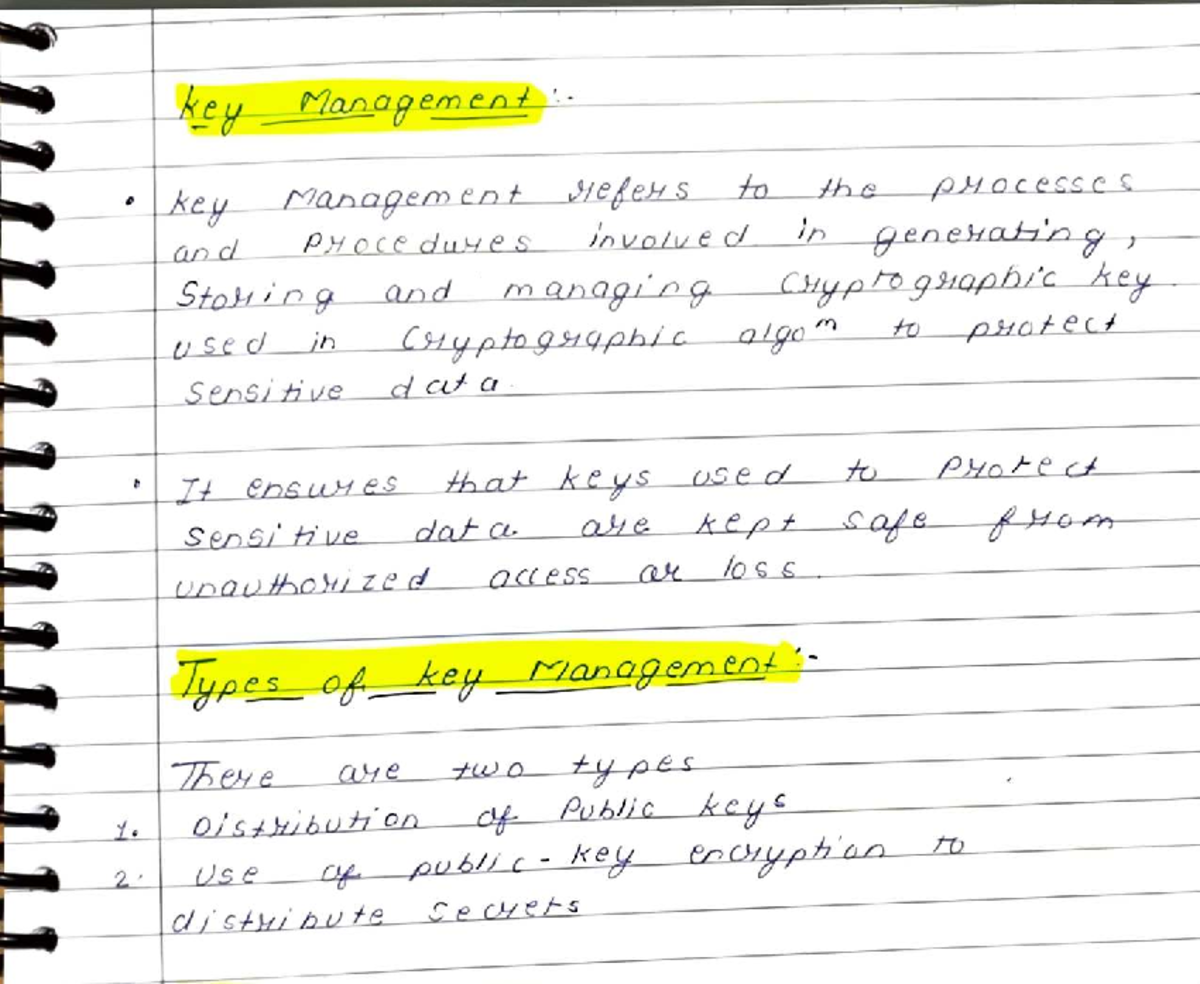 Key Management :-
• Key Management refers to the processes
and Procedures involved in generating,
Storing and managing Cryptographic key
used in Cryptographic algoᵐ to protect
Sensitive data.
• It ensures that keys used to Protect
Sensitive data are kept safe from
unauthorized access or loss.
Types of key Management :-
There are two types
1. Distribution of Public keys
2. Use of public-key encryption to
distribute Secrets